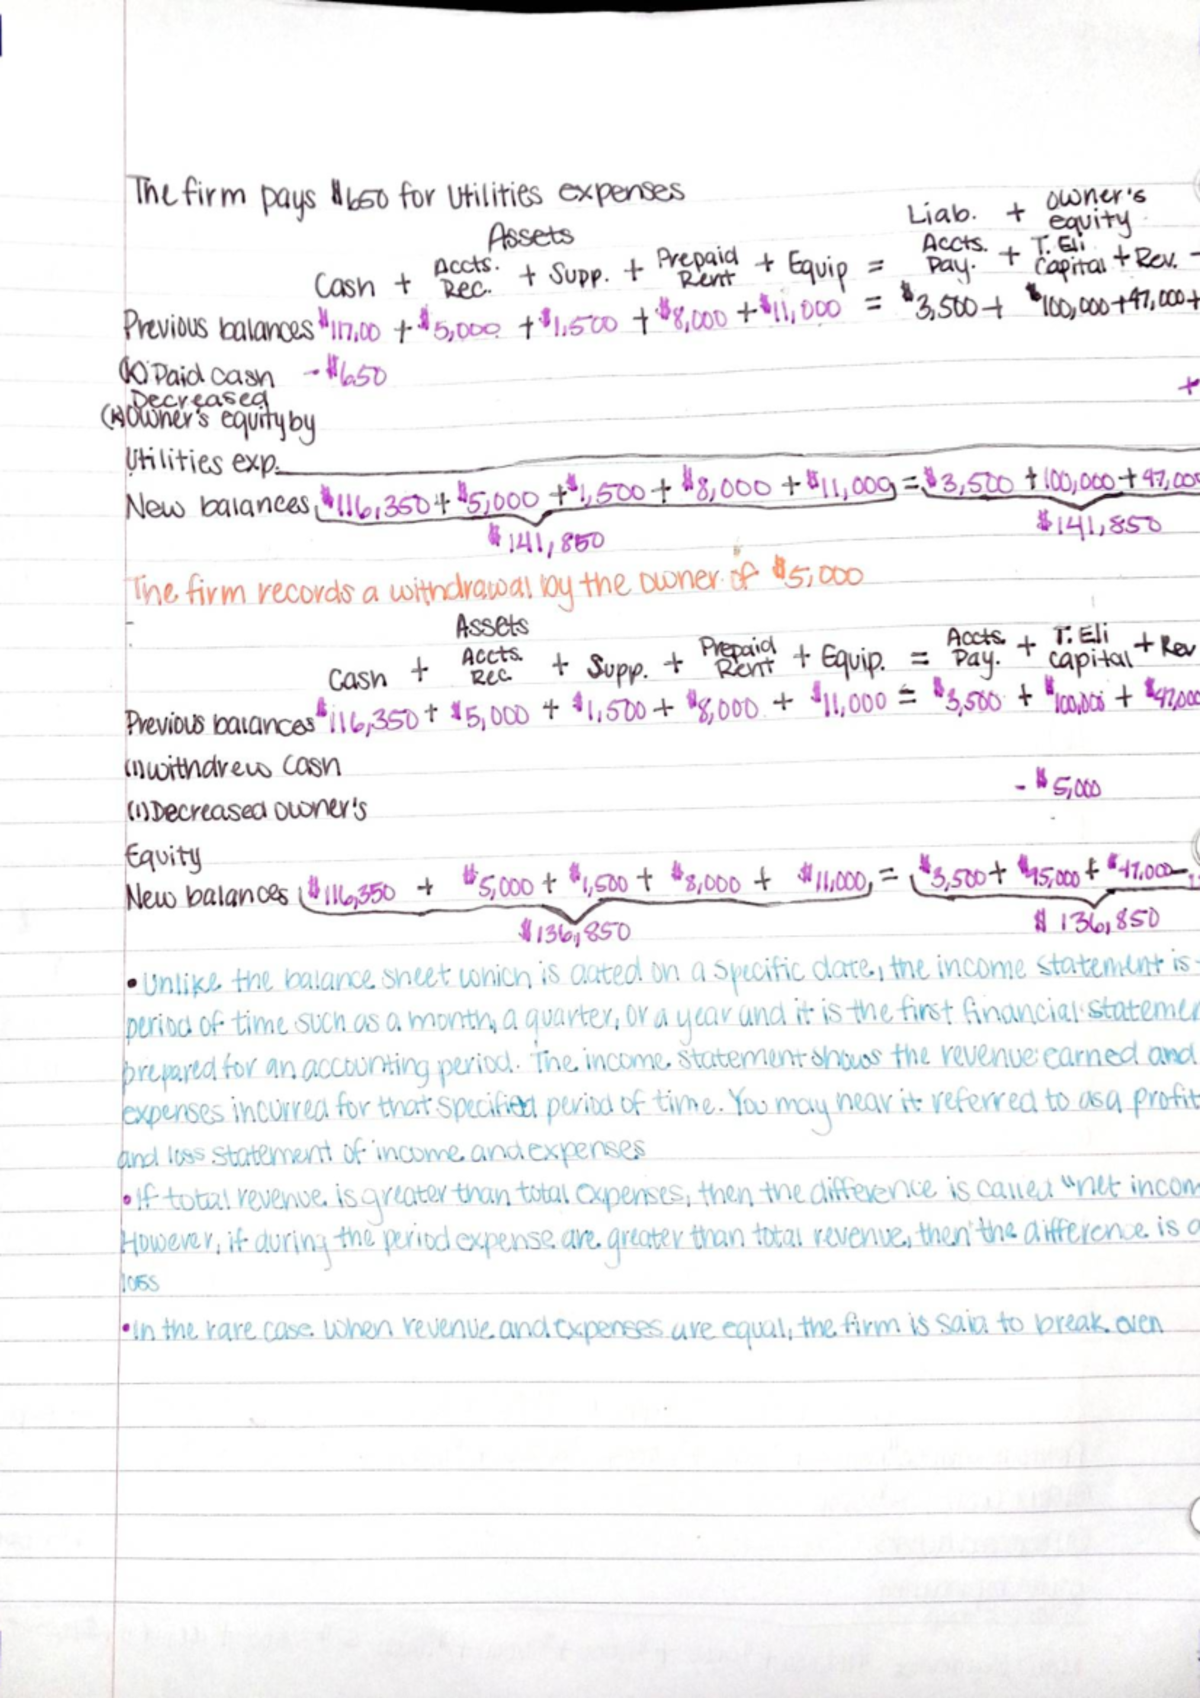 The firm pays $650 for Utilities expenses
Liab. + owner's equity
Assets
Cash + Accts. Rec. + Supp. + Prepaid Rent + Equip = Accts. Pay. + T. Eli Capital + Rev. -
Previous balances $117,00 + $5,000 + $1,500 + $8,000 + $11,000 = $3,500 + $100,000 + 47,000 +
(K) Paid cash - $650
+
Decreased
(K) Owner's equity by
Utilities exp.
New balances $116,350 + $5,000 + $1,500 + $8,000 + $11,000 = $3,500 + 100,000 + 47,000
$141,850 $141,850
The firm records a withdrawal by the owner of $5,000
Assets
Cash + Accts. Rec. + Supp. + Prepaid Rent + Equip. = Accts. Pay. + T. Eli capital + Rev
Previous balances $116,350 + $5,000 + $1,500 + $8,000 + $11,000 = $3,500 + $100,000 + $47,000
(l) withdrew cash
- $5,000
(l) Decreased owner's
Equity
New balances $116,350 + $5,000 + $1,500 + $8,000 + $11,000 = $3,500 + $95,000 + $47,000 -
$136,850 $136,850
• Unlike the balance sheet which is dated on a specific date, the income statement is
period of time such as a month, a quarter, or a year and it is the first financial statemen
prepared for an accounting period. The income statement shows the revenue earned and
expenses incurred for that specified period of time. You may hear it referred to as a profit
and loss statement of income and expenses
• If total revenue is greater than total expenses, then the difference is called "net incom
However, if during the period expense are greater than total revenue, then the difference is a
loss
• In the rare case when revenue and expenses are equal, the firm is said to break even